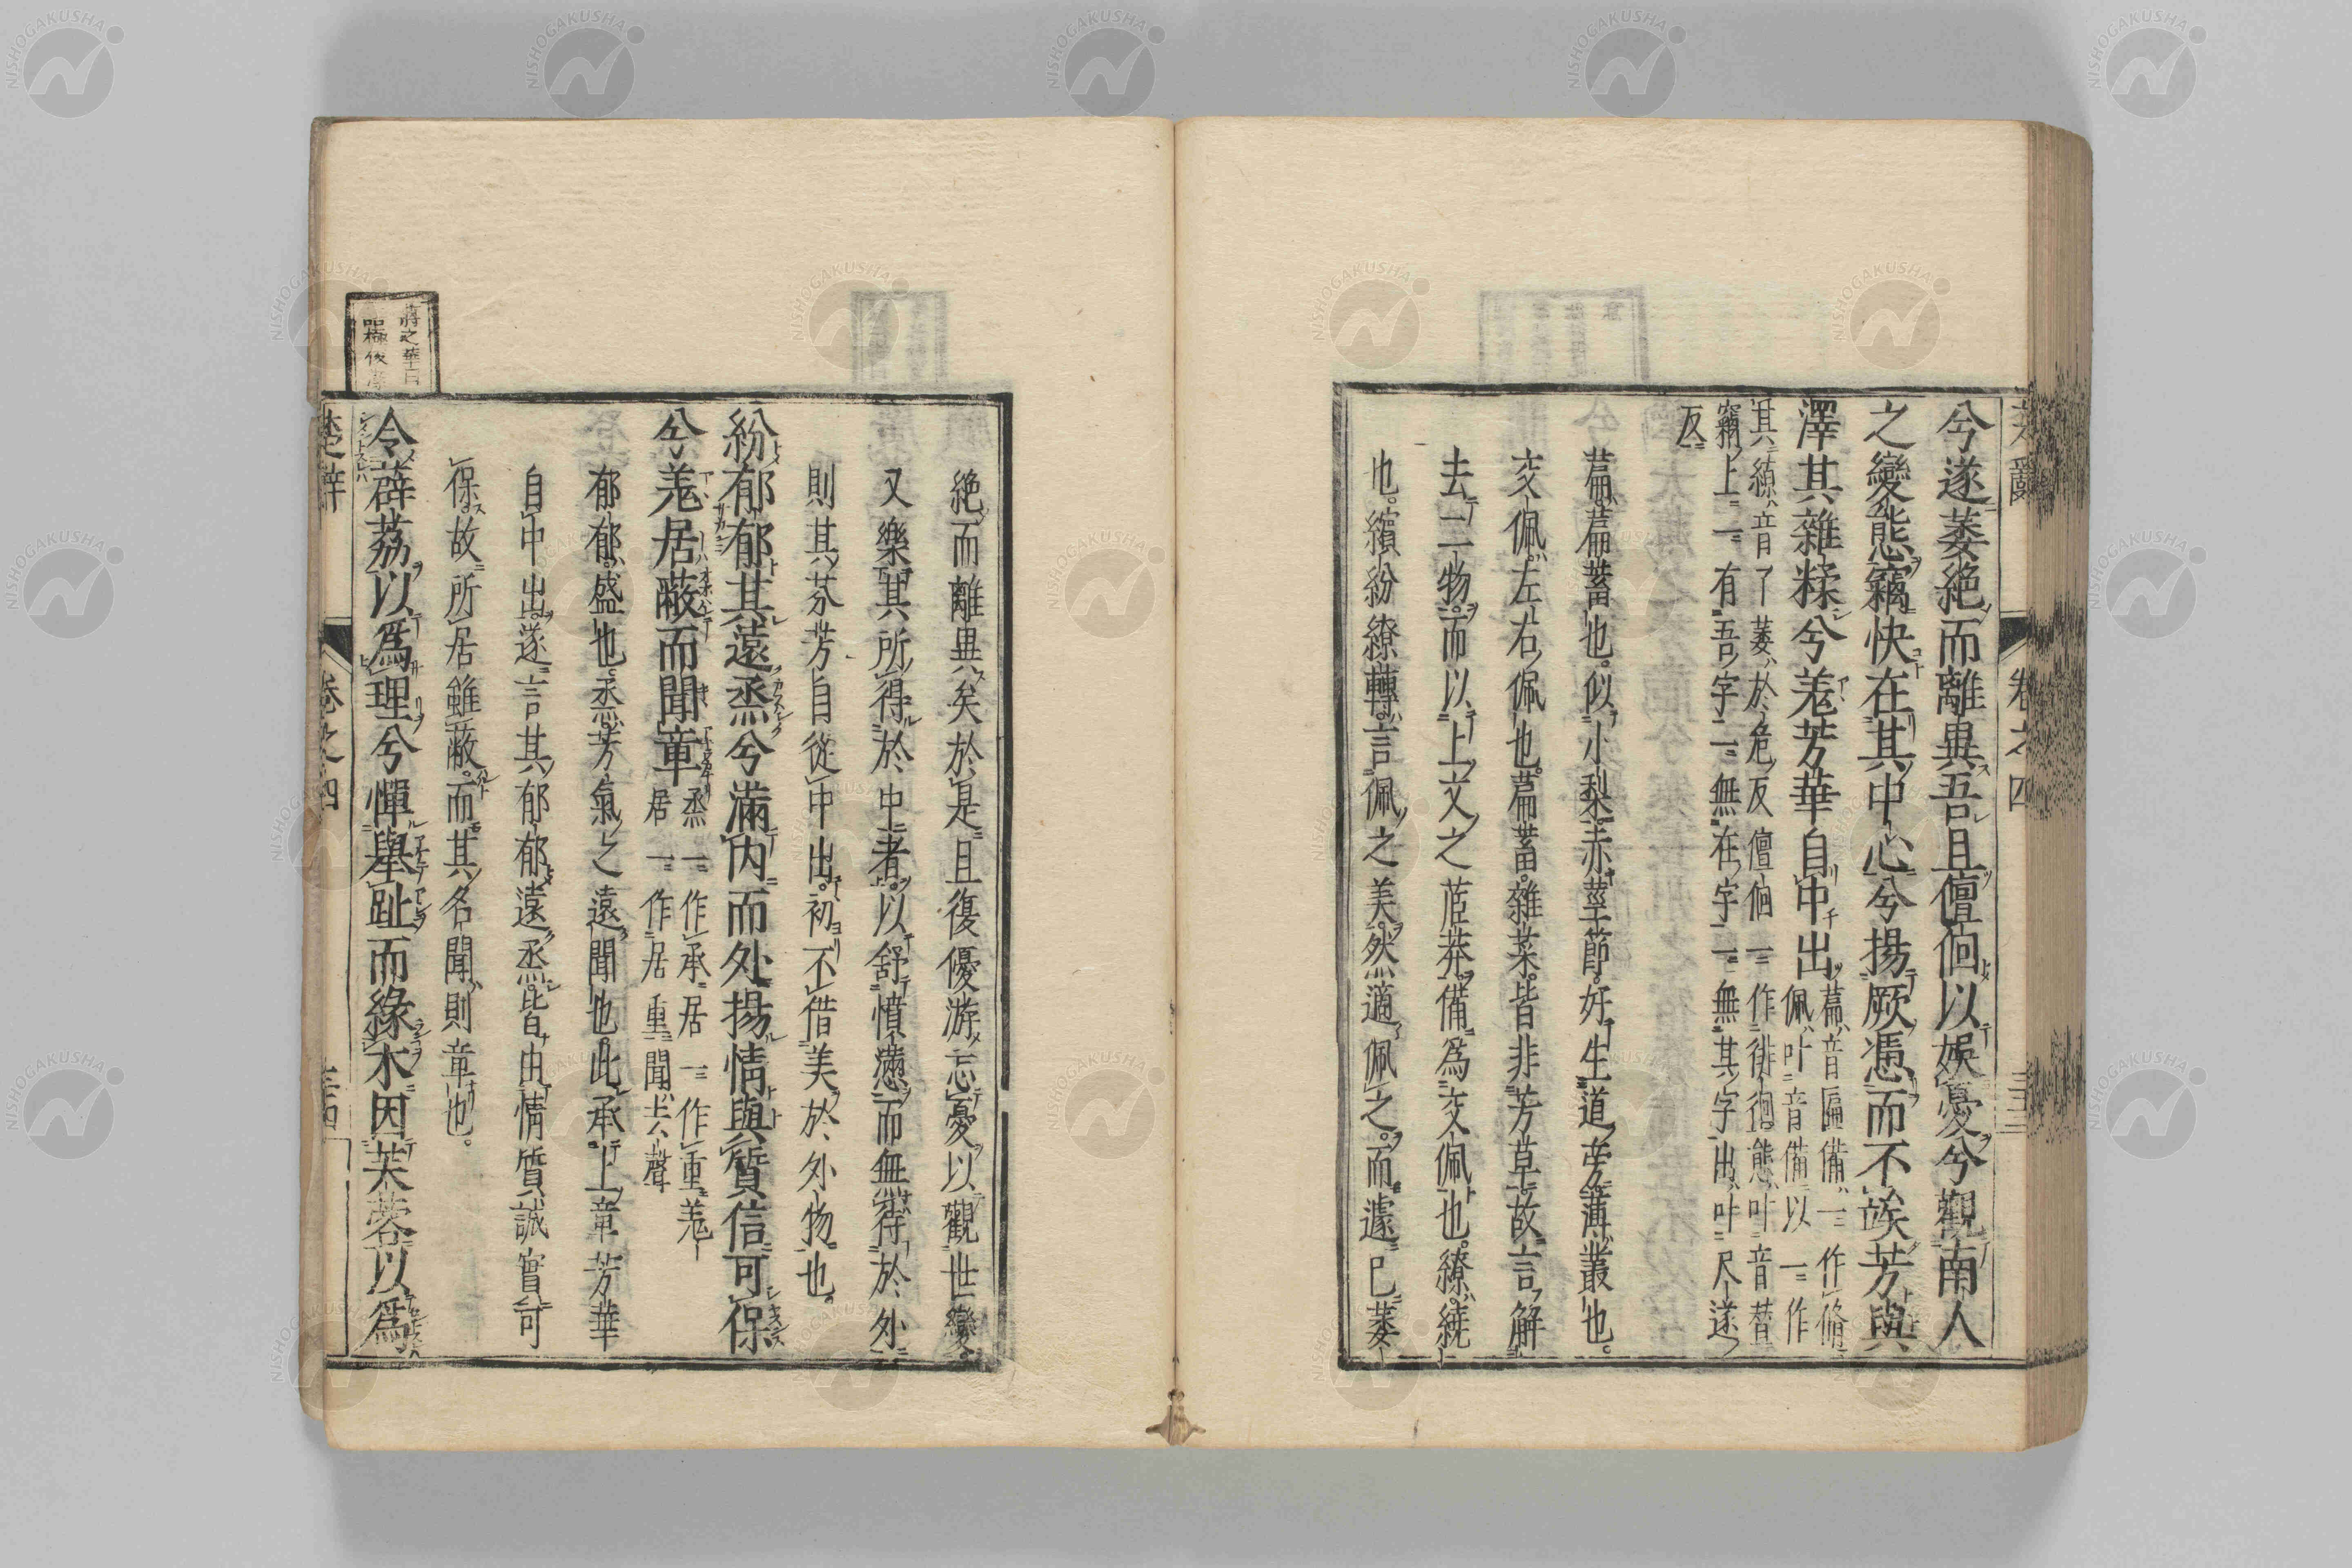 兮遂萎絶而離異吾且儃佪以娛憂兮觀南人
之變態竊快在其中心兮揚厥憑而不竢芳與
澤其雜糅兮羌芳華自中出
萹音匾備一作脩
佩叶音備以一作
其繚音了萎於危反儃佪一作徘徊態叶音替
竊上一有吾字一無在字一無其字出叶尺遂
反
萹萹蓄也似小梨赤莖節好生道旁薄叢也。
交佩左右佩也萹蓄雜菜皆非芳草故言解
去二物而以上文之茝莽備爲交佩也繚繞
也繽紛繚轉言佩之美然適佩之而遽已萎
絶而離異矣於是且復優游忘憂以觀世變
又樂其所得於中者以舒憤懣而無待於外
則其芬芳自從中出初不借美於外物也。
紛郁郁其遠烝兮滿内而外揚情與質信可保
兮羌居蔽而聞章
烝一作承居一作重羌
居一作居重聞去聲
郁郁盛也烝芳氣之遠聞也此承上章芳華
自中出遂言其郁郁遠烝皆由情質誠實可
保故所居雖蔽而其名聞則章也。
令薜茘以爲理兮憚舉趾而緣木因芙蓉以爲
楚辭 卷之四
卷之四
NISHOGAKUSHA